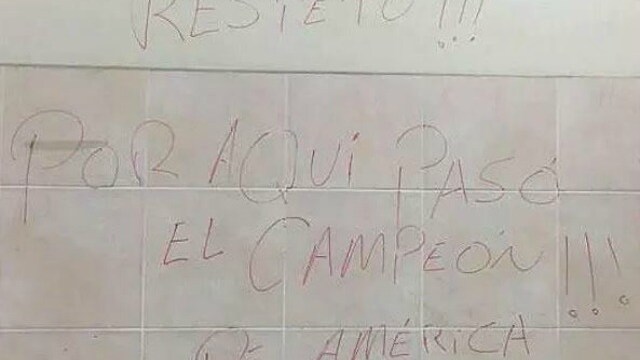 RESPETO!!!
POR AQUI PASÓ
EL CAMPEÓN!!!
DE AMÉRICA